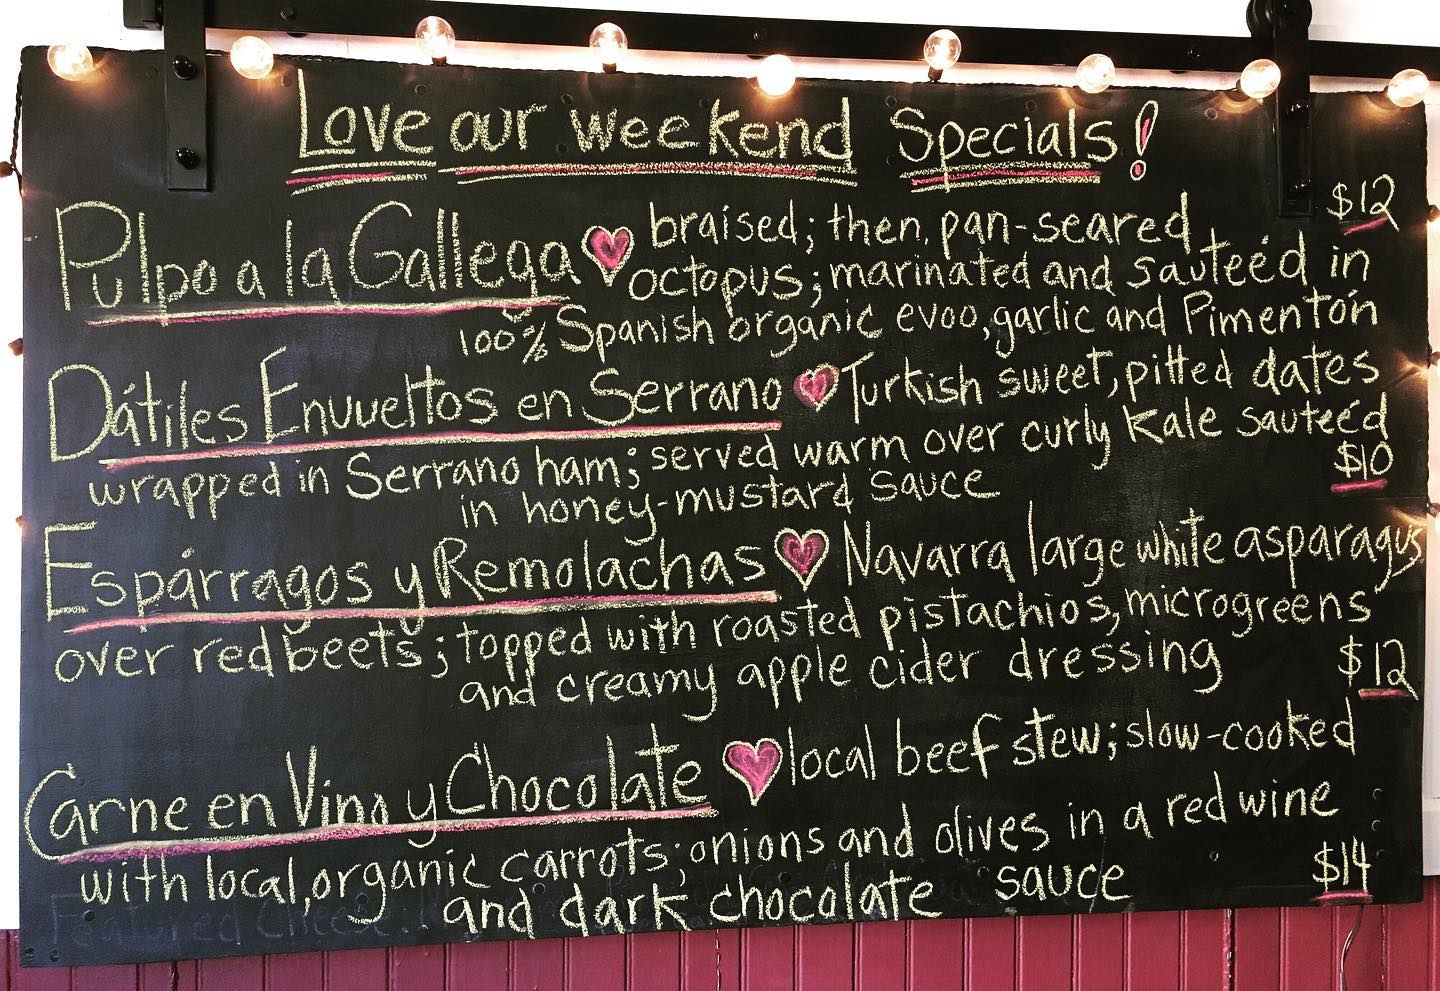 Love our weekend Specials!
$12
Pulpo a la Gallega braised; then, pan-seared
octopus; marinated and sauteéd in
100% Spanish organic evoo, garlic and Pimentón
Dátiles Envueltos en Serrano Turkish sweet, pitted dates
wrapped in Serrano ham; served warm over curly Kale sauteéd
in honey-mustard sauce $10
Espárragos y Remolachas Navarra large white asparagus
over red beets; topped with roasted pistachios, microgreens
and creamy apple cider dressing $12
Carne en Vino y Chocolate local beef stew; slow-cooked
with local, organic carrots; onions and olives in a red wine
and dark chocolate sauce $14
Featured Cheese: